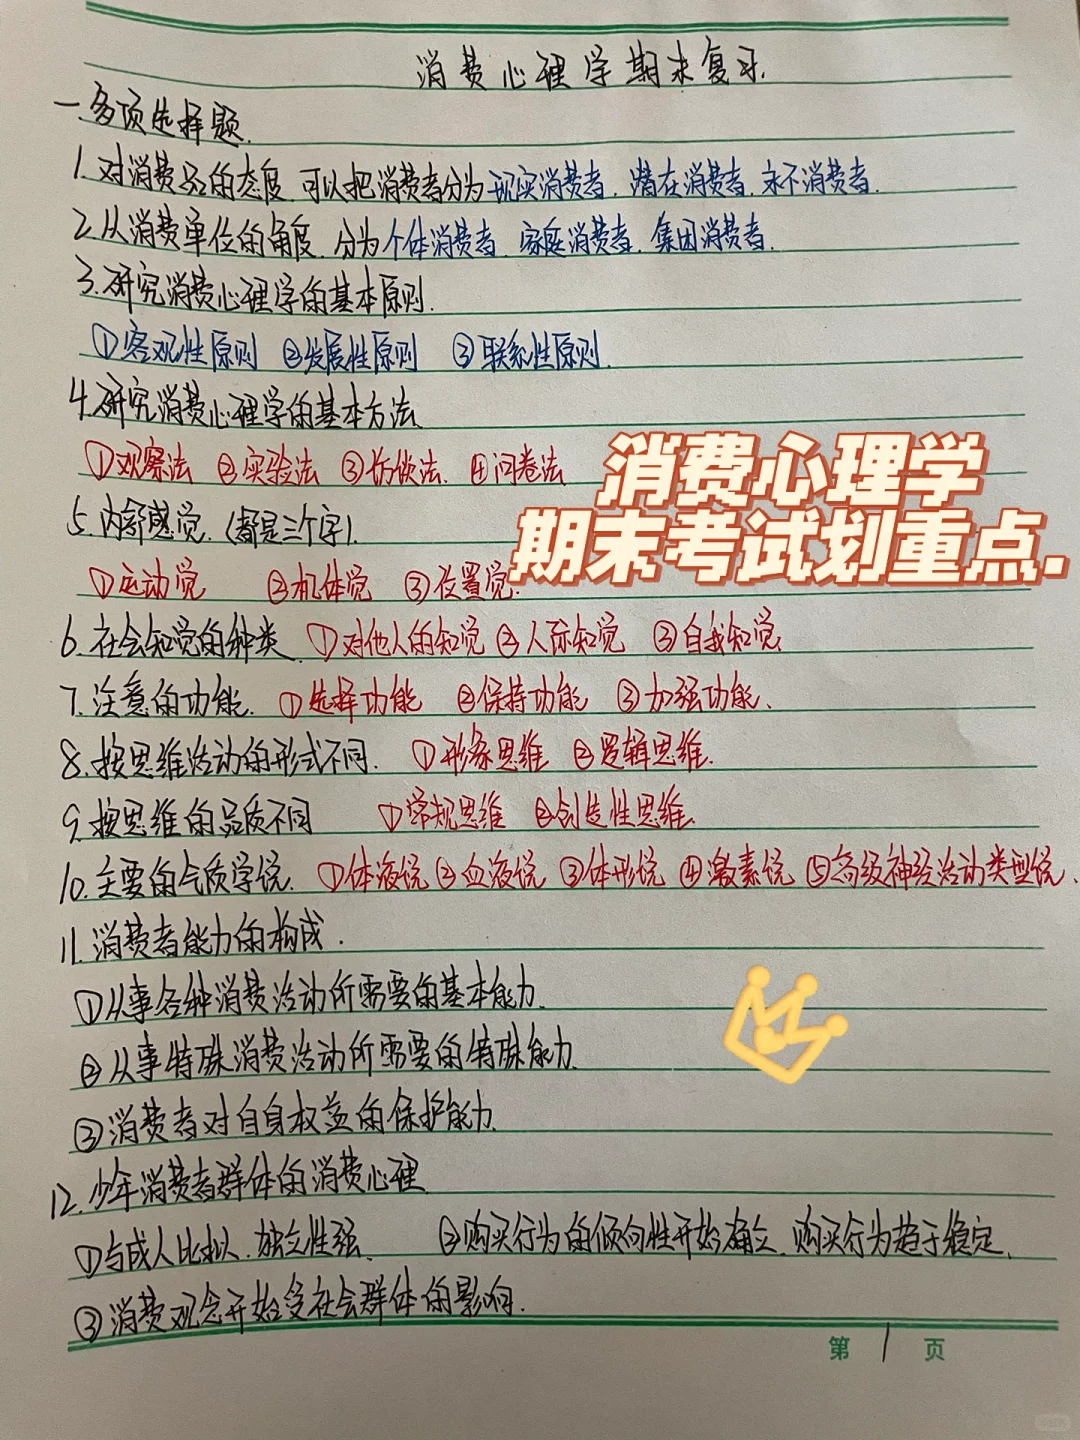 消费心理学期末复习.
一.多项选择题.
1.对消费品的态度,可以把消费者分为现实消费者,潜在消费者,永不消费者.
2.从消费单位的角度,分为个体消费者,家庭消费者,集团消费者.
3.研究消费心理学的基本原则.
①客观性原则 ②发展性原则 ③联系性原则.
4.研究消费心理学的基本方法
①观察法 ②实验法 ③访谈法. ④问卷法
消费心理学
5.内部感觉.(都是三个字).
期末考试划重点.
①运动觉 ②机体觉 ③位置觉.
6.社会知觉的种类 ①对他人的知觉 ②人际知觉 ③自我知觉
7.注意的功能. ①选择功能 ②保持功能 ③加强功能.
8.按思维活动的形式不同. ①形象思维 ②逻辑思维.
9.按思维的品质不同 ①常规思维 ②创造性思维.
10.主要的气质学说. ①体液说 ②血液说 ③体形说 ④激素说 ⑤高级神经活动类型说.
11.消费者能力的构成.
①从事各种消费活动所需要的基本能力.
②从事特殊消费活动所需要的特殊能力.
③消费者对自身权益的保护能力.
12.少年消费者群体的消费心理
①与成人比拟,独立性强. ②购买行为的倾向性开始确立,购买行为趋于稳定.
③消费观念开始受社会群体的影响.
第 1 页